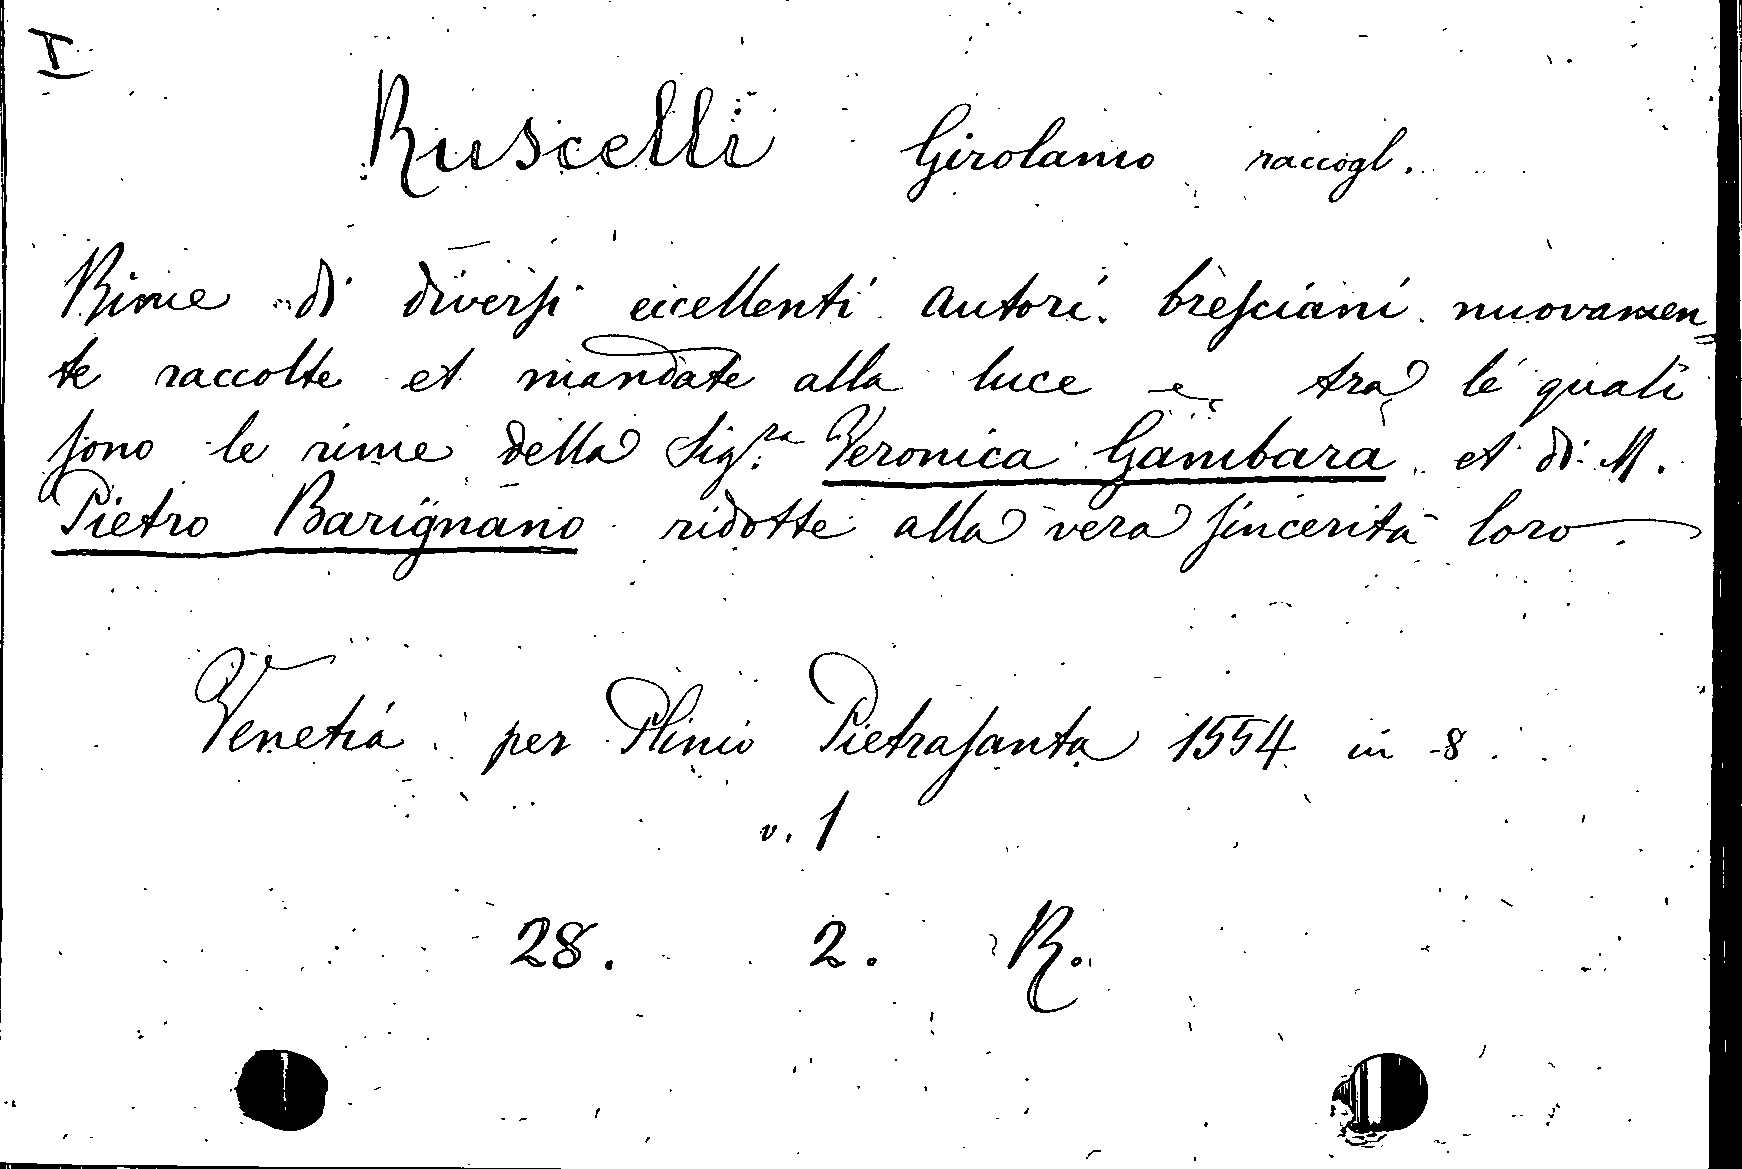 I
Ruscelli Girolamo raccogl.
Rime di diversi eccellenti autori bresciani nuovamen=
te raccolte et mandate alla luce e tra le quali
sono le rime della Sig.ra Veronica Gambara et di M.
Pietro Barignano ridotte alla vera sincerità loro.
Venetia per Plinio Pietrasanta 1554 in 8.
v. 1
28. 2. R.